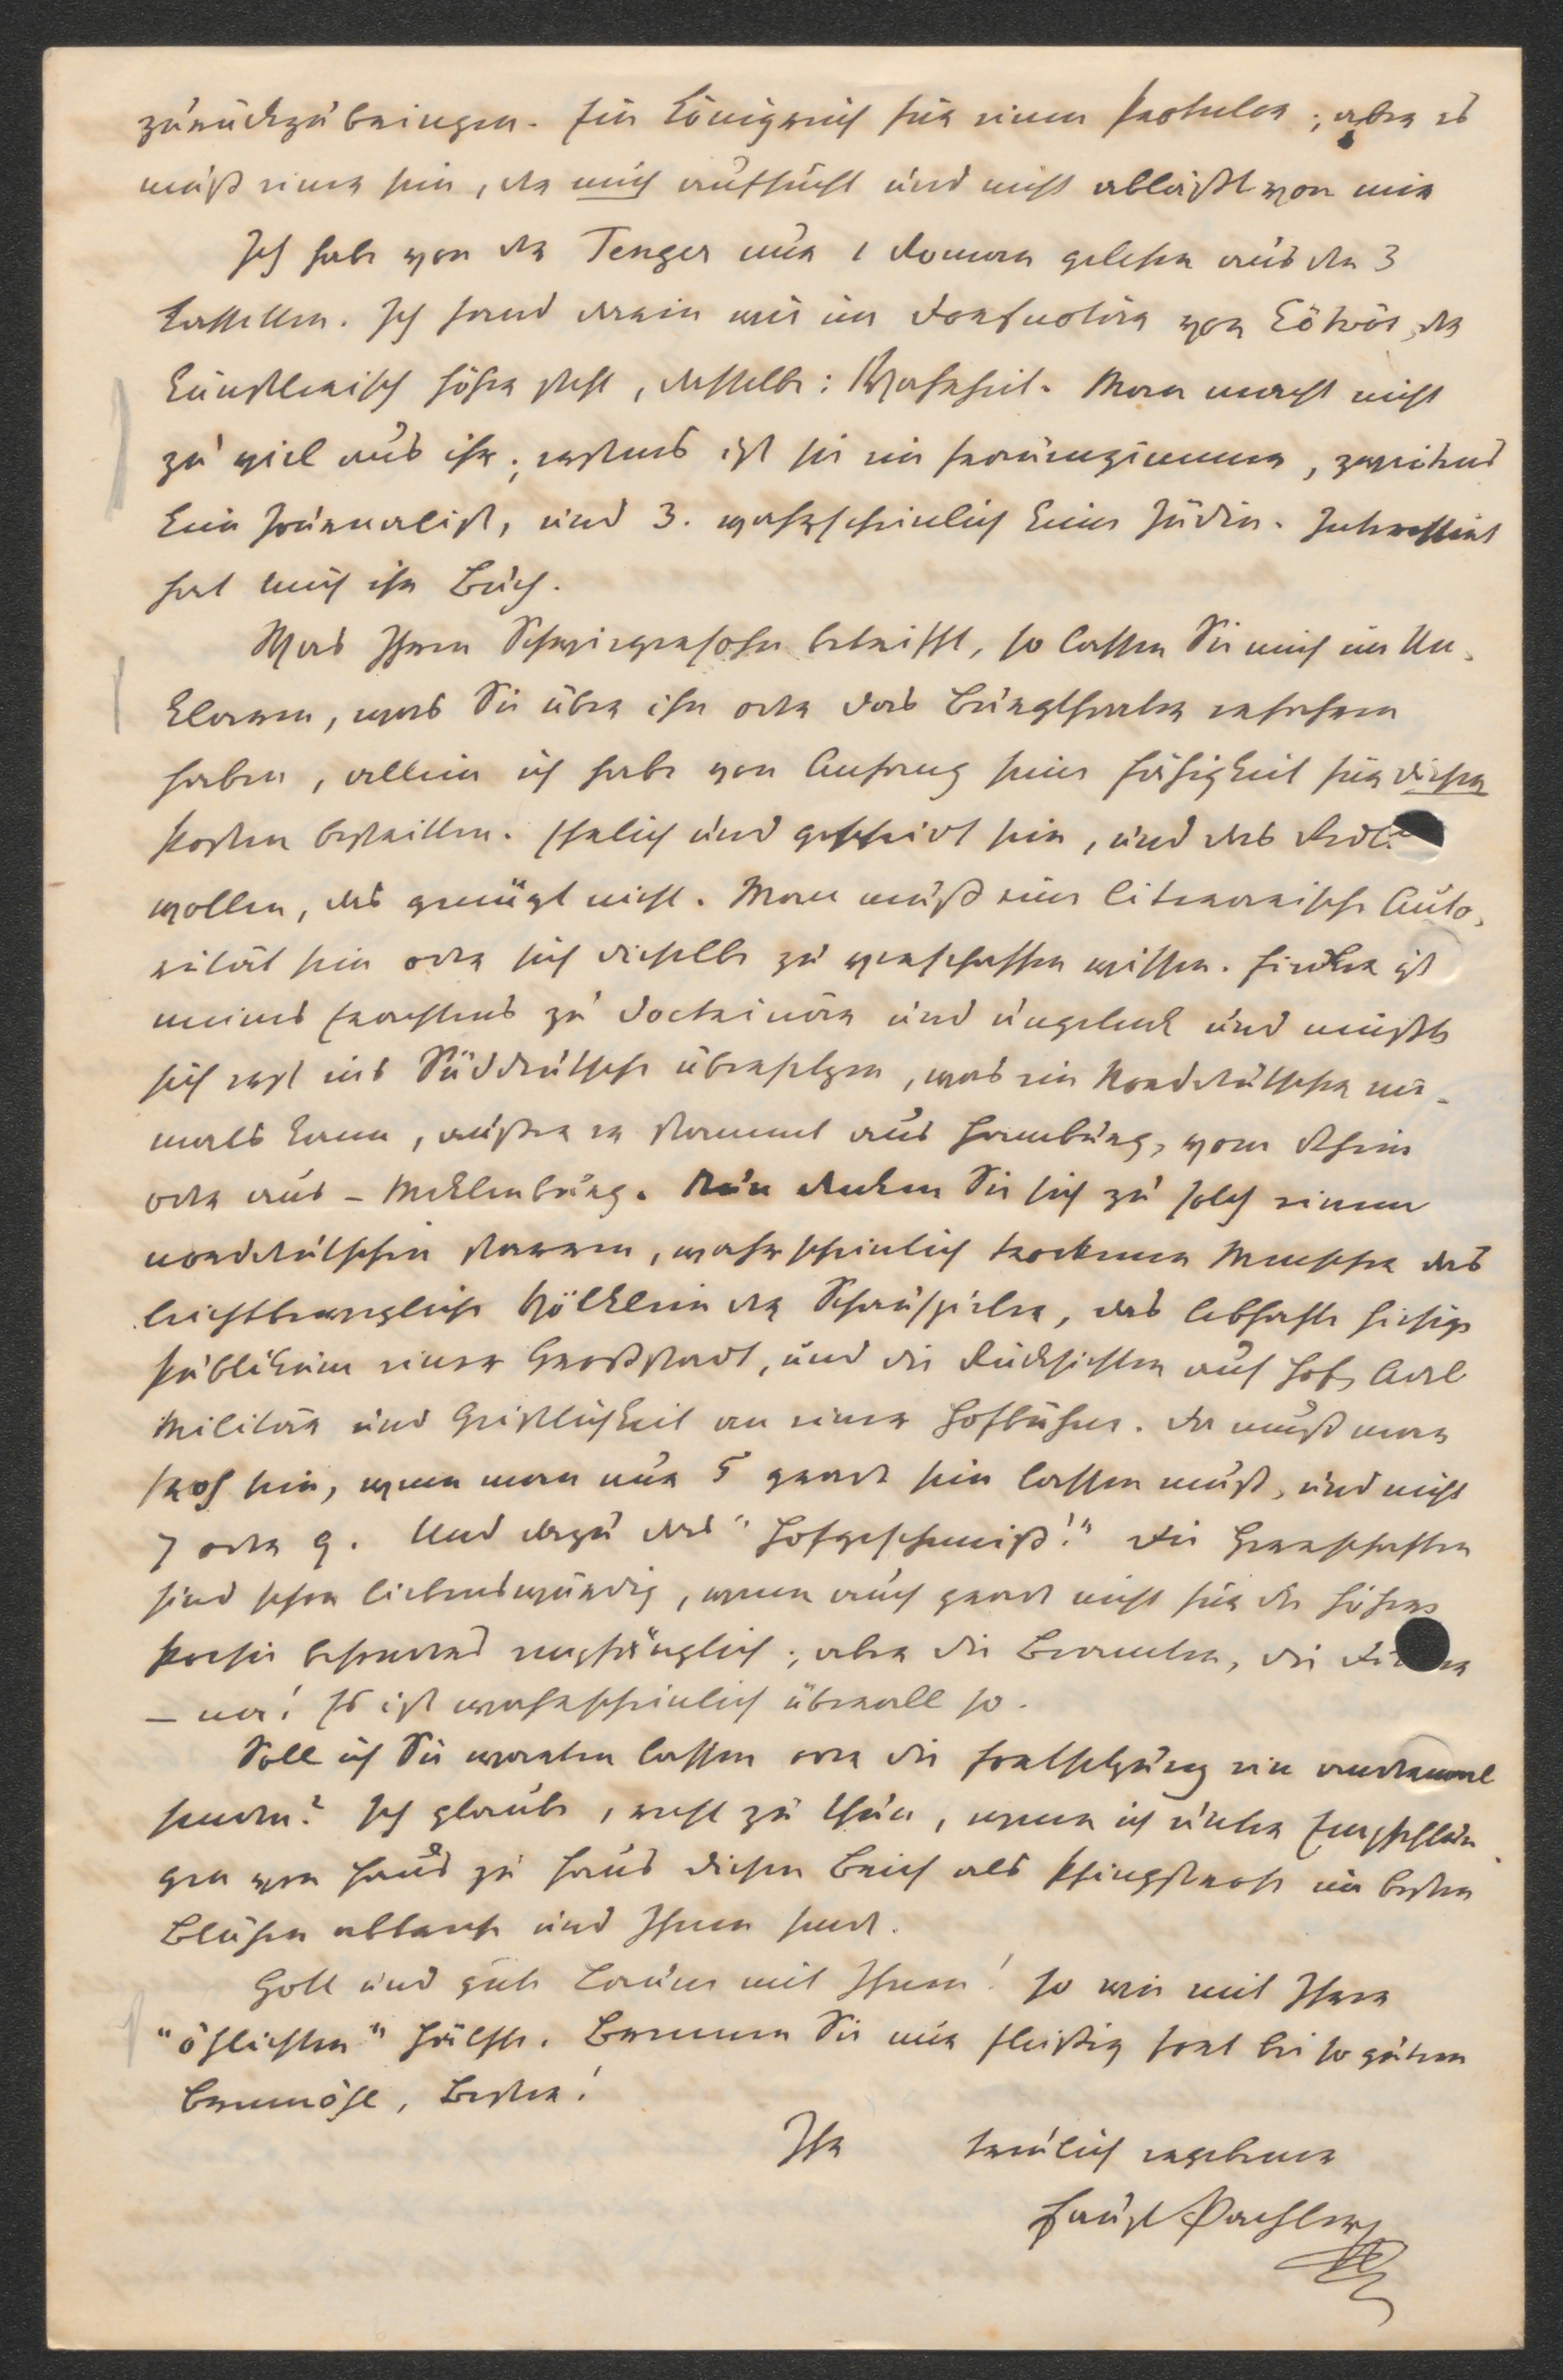 zurückzubringen. Ein Königreich für einen Protector; aber es
muß einer sein, der mich aufsucht und nicht abläßt von mir
Ich habe von der Tenger nur 1 Roman gelesen aus den 3
Cassetten. Ich fand darin wie im Dorfnotär von Eötvös, der
künstlerisch höher steht, dasselbe: Wahrheit. Man macht nicht
zu viel aus ihr; erstens ist sie ein Frauenzimmer, zweitens
kein Journalist, und 3. wahrscheinlich keine Jüdin. Interessirt
hat mich ihr Buch.
Was Ihren Schwiegersohn betrifft, so lassen Sie mich im Un-
klaren, was Sie über ihn oder das Burgtheater erfahren
haben, allein ich habe von Anfang seine Fähigkeit für diesen
Posten bestritten. Ehrlich und gescheidt sein, und das
wollen, das genügt nicht. Man muß eine literarische Auto-
rität sein oder sich dieselbe zu verschaffen wissen. Förster ist
meines Erachtens zu doctrinär und ungelenk und müßte
sich erst ins Süddeutsche übersetzen, was ein Norddeutscher nie-
mals kann, außer er stammt aus Hamburg, vom Rhein
oder aus – Meklenburg. Nun denken Sie sich zu solch einem
norddeutschen starren, wahrscheinlich trockenen Menschen das
leichtbewegliche Völklein der Schauspieler, das lebhafte hiesige
Publikum einer Großstadt, und die Rücksichten auf Hof, Adel
Militär und Geistlichkeit an einer Hofbühne. Da muß man
froh sein, wenn man nur 5 gerad sein lassen muß, und nicht
7 oder 9. Und dazu das "Hofgeschmeiß!" Die Herrschaften
sind schon liebenswürdig, wenn auch gerade nicht für die höhere
Poesie besonders empfänglich; aber die Beamten, die
– na! Es ist wahrscheinlich überall so.
Soll ich Sie warten lassen oder die Fortsetzung ein andermal
senden? Ich glaube, recht zu thun, wenn ich unter Empfehlun-
gen von Haus zu Haus diesen Brief als Pfingstrose im besten
Blühen abbreche und Ihnen sende.
Gott und gute Laune mit Ihnen! so wie mit Ihrer
"ößlichsten" Hälfte. Brennen Sie nur fleißig fort bei so gutem
Brennöhl, Bester!
Ihr treulich ergebener
Faust Pachler